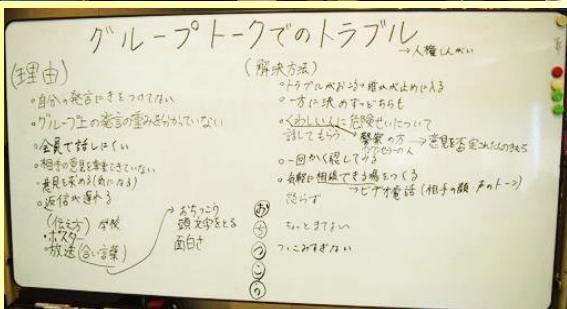 グループトークでのトラブル
→人権しんがい
(理由)
。自分の発言にきをつけてない
。グループ上の発言の重みを分かっていない
。全員で話しにくい
。相手の意見を尊重できていない
。意見を求める(気になる)
。返信が遅れる
(伝え方) 学校
・ポスター
・放送(合い言葉)
おちつこう
頭文字をとる
面白さ
(解決方法)
。トラブルがおこる 誰かが止めに入る
。一方に決めずどちらも
。くわしい人に危険せいについて
話してもらう
警察の方→意見を否定された人のきもち
カウンセラーの人
。一回かくにんしてみる
。気軽に相談できる場をつくる
→ビデオ電話(相手の顔・声のトーン)
お 怒らず
ち ちょっとまてよ
つ つっこみすぎない
こ
う